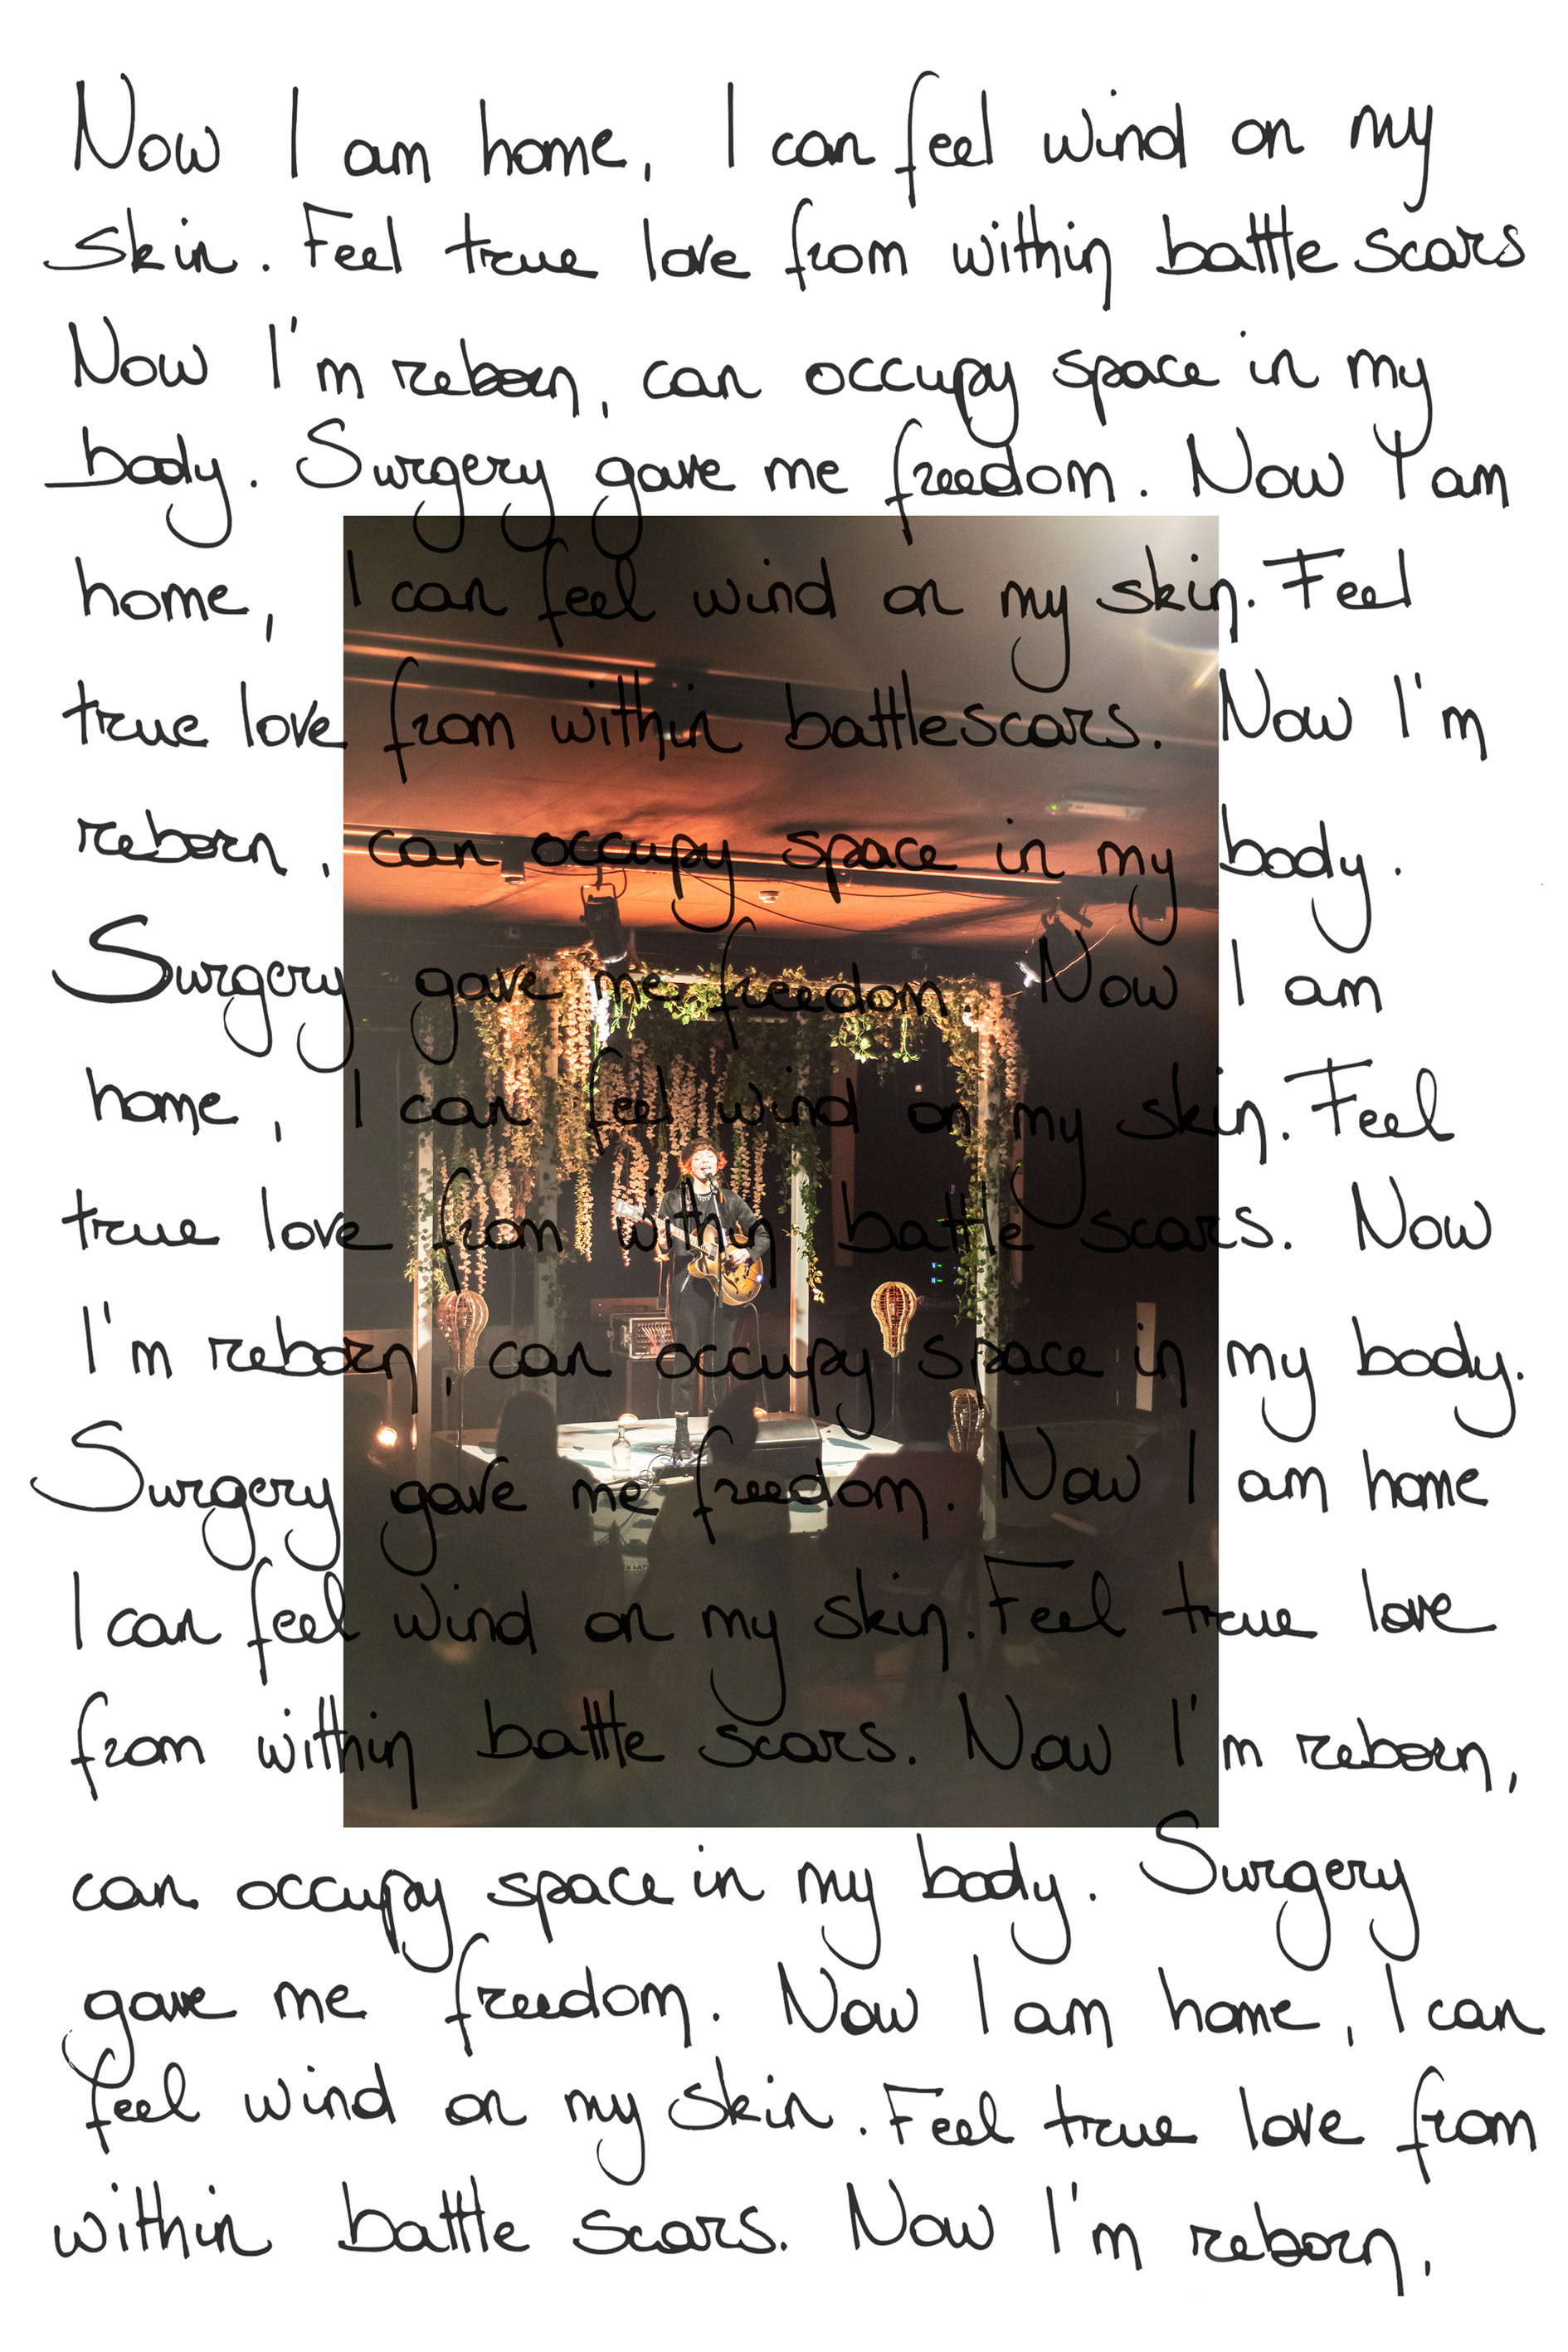 Now I am home, I can feel wind on my
skin. Feel true love from within battle scars
Now I'm reborn, can occupy space in my
body. Surgery gave me freedom. Now I am
home, I can feel wind on my skin. Feel
true love from within battlescars. Now I'm
reborn, can occupy space in my body.
Surgery gave me freedom. Now I am
home, I can feel wind on my skin. Feel
true love from within battle scars. Now
I'm reborn, can occupy space in my body.
Surgery gave me freedom. Now I am home
I can feel wind on my skin. Feel true love
from within battle scars. Now I'm reborn,
can occupy space in my body. Surgery
gave me freedom. Now I am home, I can
feel wind on my skin. Feel true love from
within battle scars. Now I'm reborn,